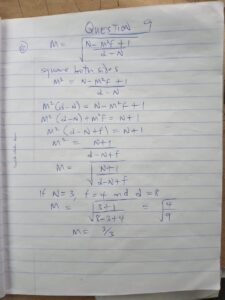 QUESTION 9
M = √(N - m²f + 1 / d - N)
square both sides
M² = N - m²f + 1 / d - N
M²(d - N) = N - M²f + 1
M²(d - N) + M²f = N + 1
M²(d - N + f) = N + 1
M² = N + 1 / d - N + f
M = √(N + 1 / d - N + f)
If N = 3, f = 4 and d = 8
M = √(3 + 1 / 8 - 3 + 4) = √(4 / 9)
M = 2/3